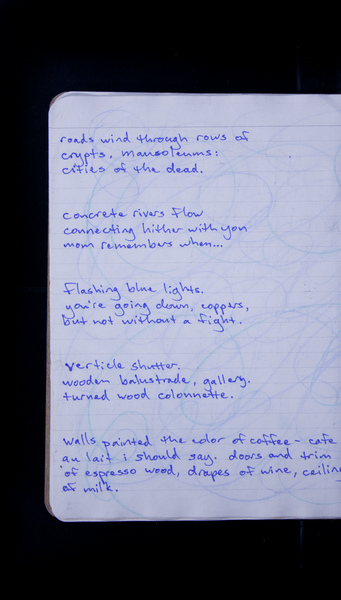 roads wind through rows of
crypts, mausoleums:
cities of the dead.
concrete rivers flow
connecting hither with yon
mom remembers when...
flashing blue lights.
you're going down, coppers,
but not without a fight.
verticle shutter.
wooden balustrade, gallery.
turned wood colonnette.
walls painted the color of coffee - cafe
au lait i should say. doors and trim
of espresso wood, drapes of wine, ceiling
of milk.